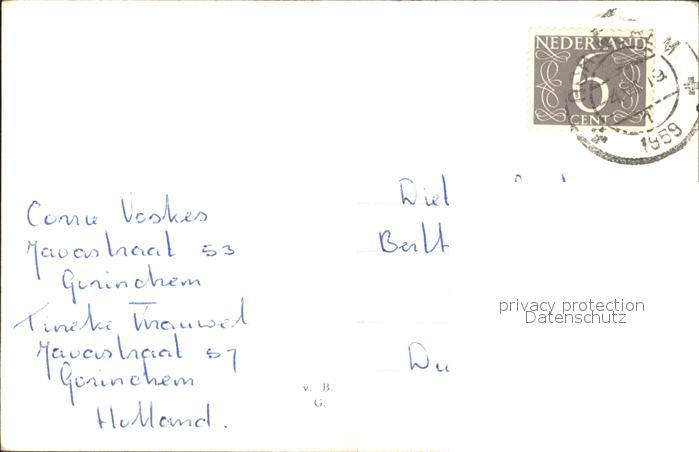 NEDERLAND
6
CENT
19
1959
Corrie Voskes
Javastraat 53
Gorinchem
Tineke
Javastraat 57
Gorinchem
Holland.
Diet
Du
privacy protection
Datenschutz
v. B.
G.